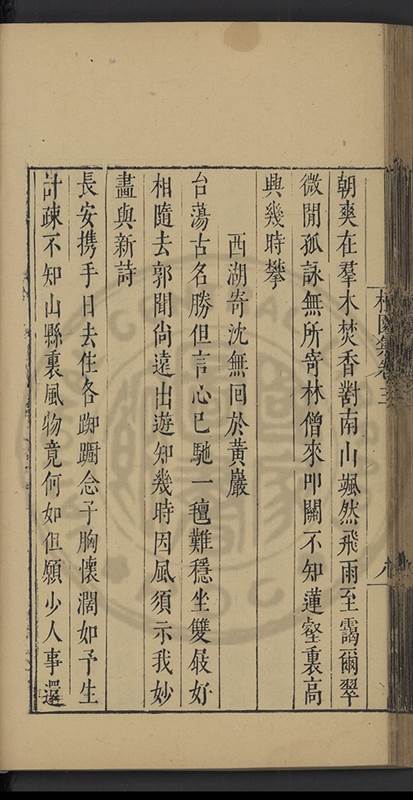 朝爽在羣木焚香對南山颯然飛雨至靄爾翠
微閒孤詠無所寄林僧來叩關不知蓮壑裏高
興幾時攀
西湖寄沈無回於黃巖
台蕩古名勝但言心已馳一氊難穩坐雙屐好
相隨去郭聞尚遠出遊知幾時因風須示我妙
畫與新詩
長安攜手日去住各踟躕念子胸懷濶如予生
計疎不知山縣裏風物竟何如但願少人事還